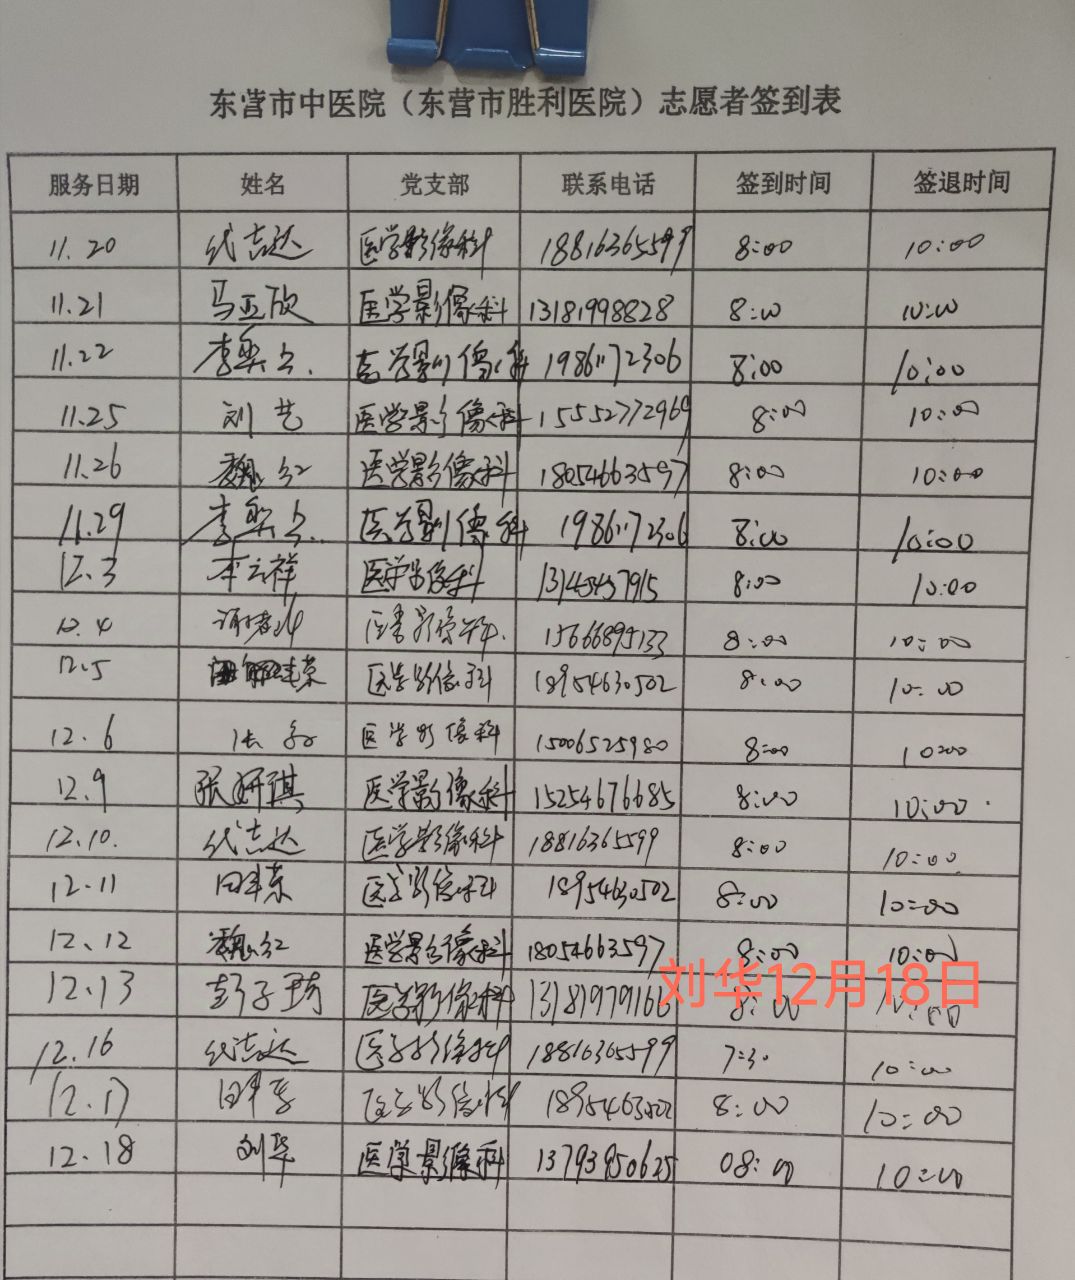 东营市中医院（东营市胜利医院）志愿者签到表
服务日期 姓名 党支部 联系电话 签到时间 签退时间
11.20 代志达 医学影像科 18816365599 8:00 10:00
11.21 马亚欣 医学影像科 13181998828 8:00 10:00
11.22 李 医学影像科 19861172306 8:00 10:00
11.25 刘艺 医学影像科 15552772969 8:00 10:00
11.26 魏红 医学影像科 18054663597 8:00 10:00
11.29 李 医学影像科 19861172306 8:00 10:00
12.3 李云祥 医学影像科 8:00 10:00
12.4 医学影像科 15666895133 8:00 10:00
12.5 医学影像科 18954630502 8:00 10:00
12.6 医学影像科 15006525980 8:00 10:00
12.9 张妍琪 医学影像科 15254676685 8:00 10:00
12.10. 代志达 医学影像科 18816365599 8:00 10:00
12.11 医学影像科 18954630502 8:00 10:00
12、12 魏红 医学影像科 18054663597 8:00 10:00
刘华12月18日
12.13 彭子琦 医学影像科 13181979166 8:00 10:00
12.16 代志达 医学影像科 18816365599 7:30 10:00
12.17 医学影像科 18954630502 8:00 10:00
12.18 刘华 医学影像科 13793950625 08:00 10:00